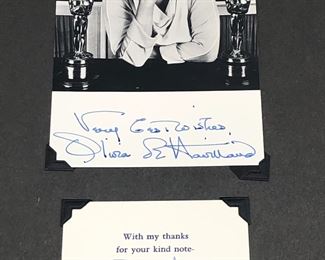 Very Best Wishes,
Olivia de Havilland
With my thanks
for your kind note-